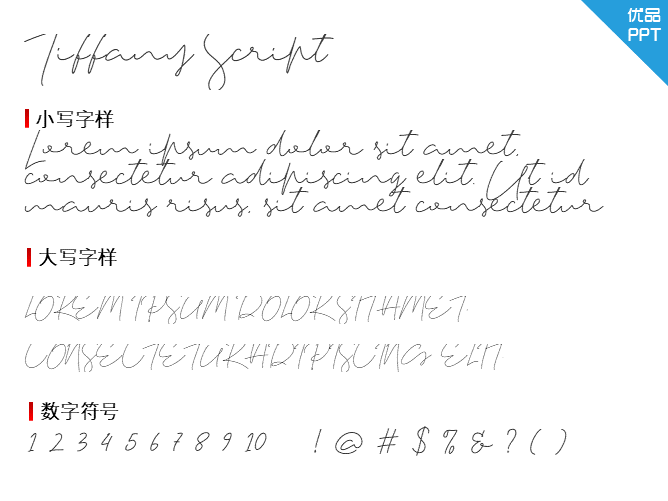 优品
PPT
Tiffany Script
小写字样
Lorem ipsum dolor sit amet,
consectetur adipiscing elit. Ut id
mauris risus, sit amet consectetur
大写字样
LOREM IPSUM DOLOR SIT AMET,
CONSECTETUR ADIPISCING ELIT
数字符号
1 2 3 4 5 6 7 8 9 10 ! @ # $ % & ? ( )